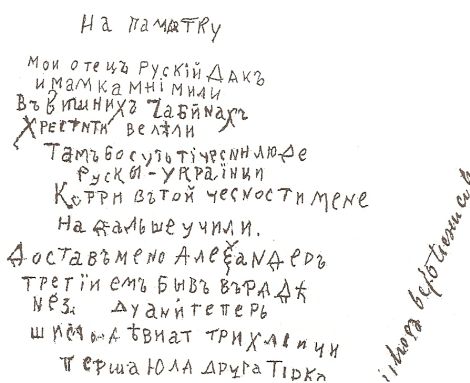 На паматку
Мои отецъ Рускій Дакъ
и мамка мні мили
Въ Вишнихъ Чабинахъ
Хрестити велѣли
Тамъ бо суть ті чесни люде
Рускы-українци
Котри въ той чесности мене
На дальше учили.
Доставъ мено Алеѯандеръ
третіи емъ бывъ въ радѣ
Неѣ. дуаи теперь
шиси девиат три хлавчи
перша Юла друга Тірка